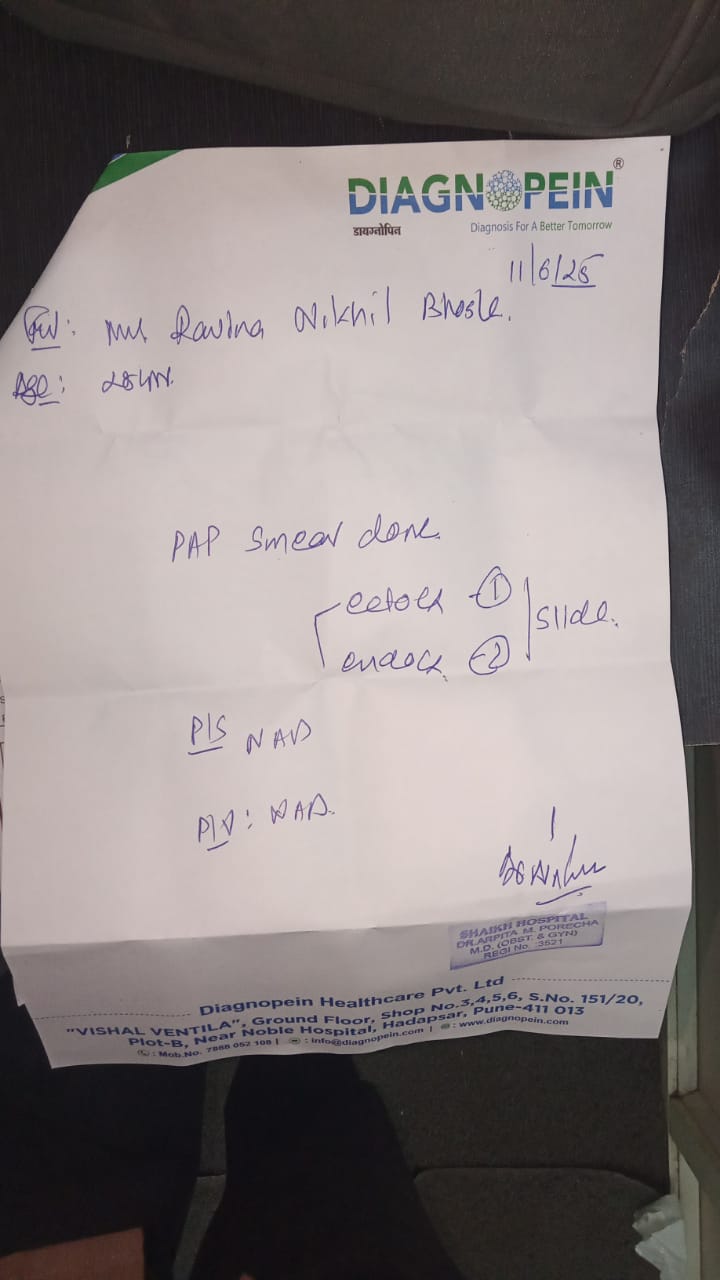 DIAGNOPEIN®
डायग्नोपिन Diagnosis For A Better Tomorrow
11/6/25
Mrs Ravina Nikhil Bhosle.
Age:
PAP Smear done.
ectocx - 1
slide.
endocx - 2
P/S NAD
P/V: NAD.
SHAIKH HOSPITAL
DR.ARPITA M. PORECHA
M.D. (OBST. & GYN)
REGI No. :3521
Diagnopein Healthcare Pvt. Ltd
"VISHAL VENTILA", Ground Floor, Shop No.3,4,5,6, S.No. 151/20,
Plot-B, Near Noble Hospital, Hadapsar, Pune-411 013
: Mob.No. 7888 052 108 | : info@diagnopein.com | : www.diagnopein.com